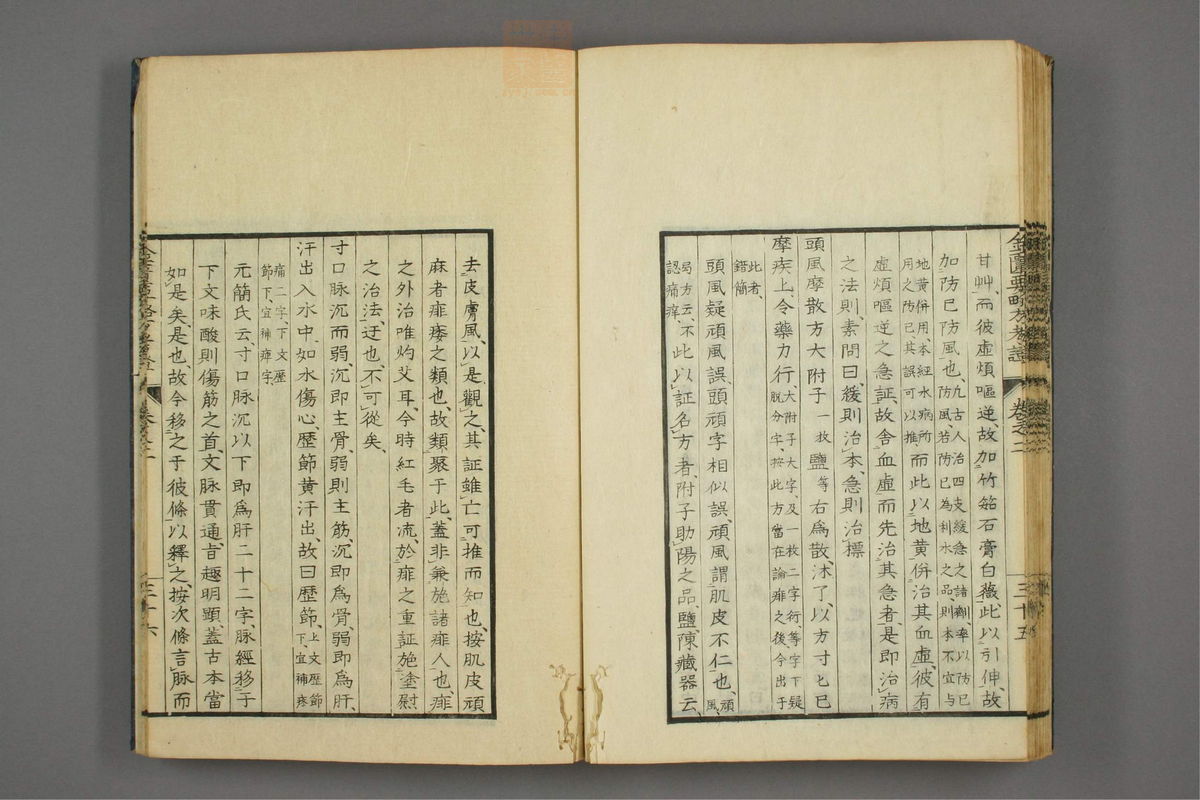 甘艸、而彼虛煩嘔逆、故加竹筎石膏白薇、此以引伸、故
加防已防風也、九古人治四支緩急之諸劑、率以防已
防風、若防已為利水之品、則本不宜与
地黄併用、本經水病所
用之防已其誤可以推、而此以地黄併治其血虛、彼有
虛煩嘔逆之急証、故舍血虛而先治其急者、是即治病
之法則、素問曰、緩則治本、急則治標
頭風摩散方大附子一枚鹽等右為散、沐了、以方寸匕已
摩疾上、令藥力行、大附子大字、及一枚二字衍、等字下疑
脫分字、按此方當在論痱之後今出于
此者、
錯簡
頭風疑頑風誤、頭頑字相似誤、頑風謂肌皮不仁也、頑風
局方云、不
認痛痒、此以証名方者、附子助陽之品、鹽陳藏器云、
三十五
去皮膚風、以是觀之、其証雖亡可推而知也、按肌皮頑
麻者痱痿之類也、故類聚于此、蓋非兼施諸痱人也、痱
之外治唯灼艾耳、今時紅毛者流、於痱之重証施塗慰
之治法、迂也、不可從矣、
寸口脉沉而弱、沉即主骨、弱則主筋、沉即為骨、弱即為肝、
汗出入水中、如水傷心、歷節黃汗出、故曰歷節、上文歷節
下、宜補疼
痛二字、下文歷
節下、宜補痺字、
元簡氏云寸口脉沉以下即為肝二十二字、脉經移于
下文味酸則傷筋之首、文脉貫通、旨趣明顯、蓋古本當
如是矣、是也故今移之于彼條以釋之、按次條言脉而
三十六